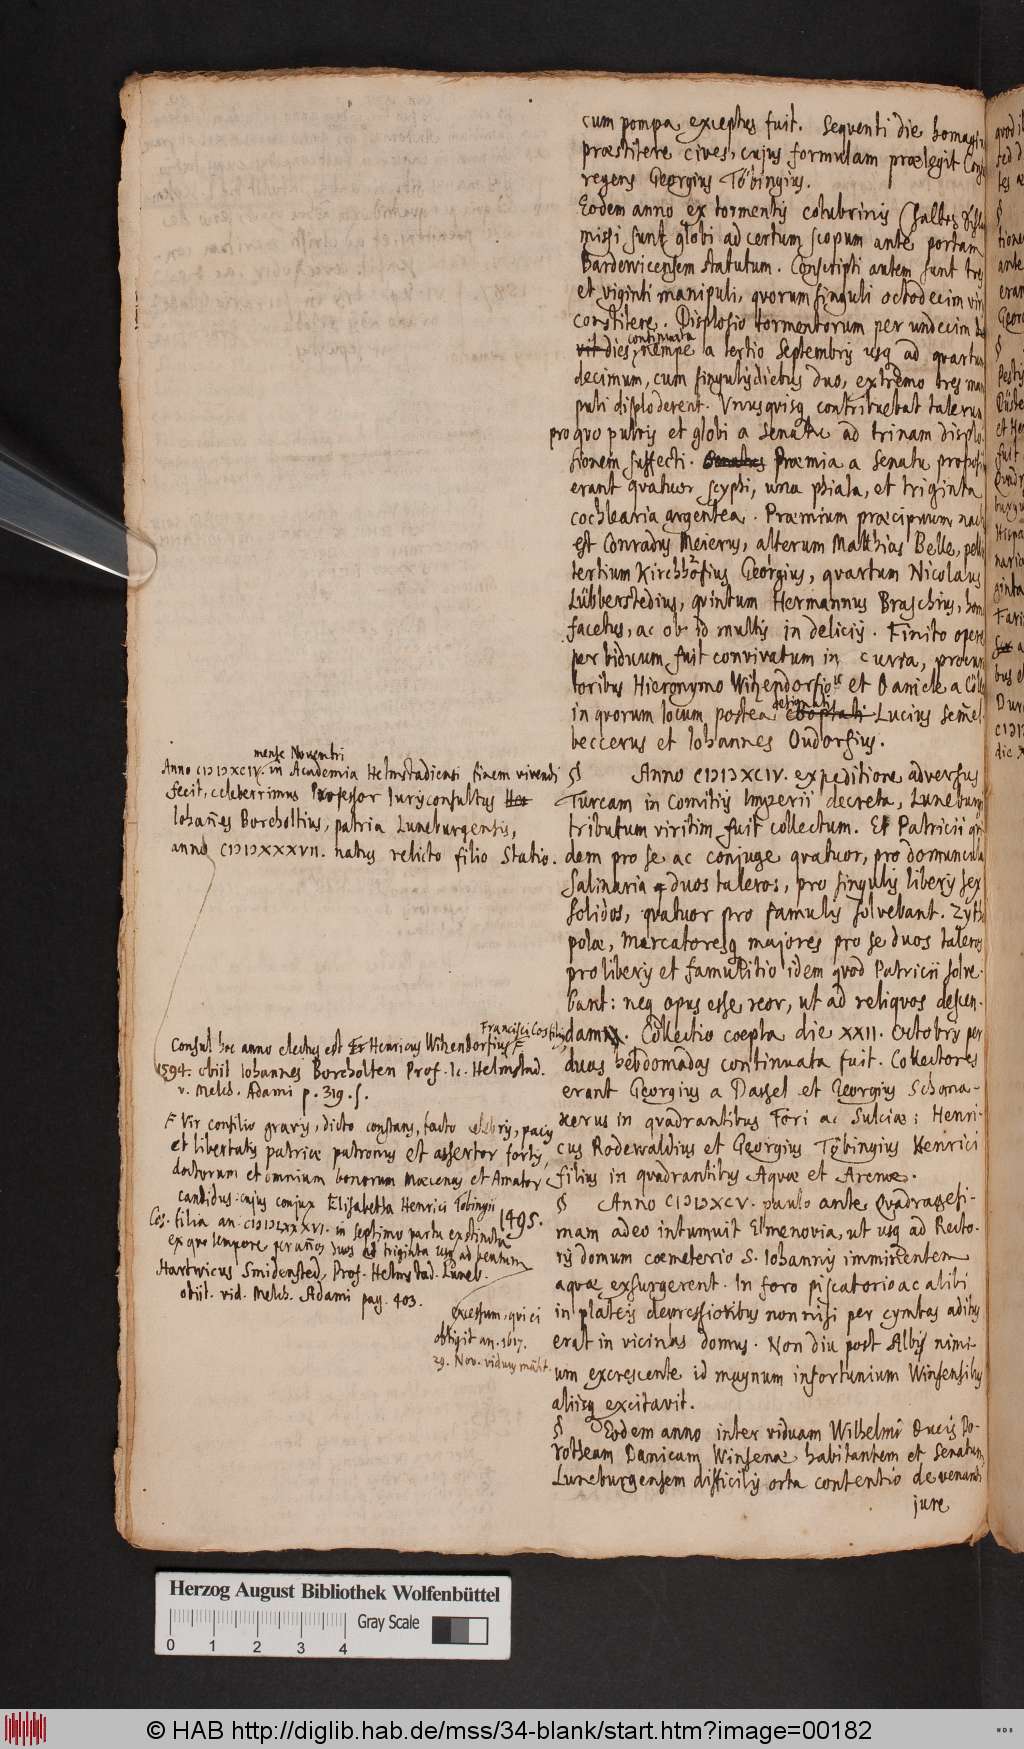 cum pompa exceptus fuit. Sequenti die homagiu
præstitere cives, cujus formulam prælegit Cons
regens Georgius Töbingius.
Eodem anno ex tormentis colubrinis (halbes
missi sunt globi ad certum scopum ante portam
Bardewicensem statutum. Conscripti autem sunt tres
et viginti manipuli, quorum singuli octodecim viri
constitere. Displosio tormentorum per undecim
dies, continuata nempe a tertio Septembris usq ad quartum
decimum, cum singulis diebus duo, extremo tres mani
puli disploderent. Unusquisq contribuebat talerum
pro quo pulvis et globi a Senatu ad trinam displo
sionem suffecti. Senatus Præmia a Senatu
erant quatuor scyphi, una phiala, et triginta
cochlearia argentea. Præmium præcipuum nactus
est Conradus Meierus, alterum Matthias Belle,
tertium Kirchhöfius Georgius, quartum Nicolaus
Lübberstedius, quintum Hermannus Braschius, homo
facetus, ac ob id multis in deliciis. Finito opere
per biduum fuit convivatum in curia, procura
toribus Hieronymo Witzendorfio et Daniele a Cöll
in quorum locum postea Lucius Semel
beccerus et Iohannes Oudorfius.
§ Anno CIƆIƆXCIV. expeditione adversus
Turcam in Comitiis Imperii decreta, Luneburgi
tributum viritim fuit collectum. Et Patricii qui
dem pro se ac conjuge quatuor, pro domuncula
Salinaria duos taleros, pro singulis liberis sex
solidos, quatuor pro famulis solvebant. Zytho
polæ, Mercatoresq majores pro se duos taleros
pro liberis et famulitio idem quod Patricii solve-
bant: neq opus esse, reor, ut ad reliquos descen-
dam. Collectio coepta die XXII. Octobris per
duas hebdomadas continuata fuit. Collectores
erant Georgius a Dassel et Georgius Schoma-
kerus in quadrantibus Fori ac Sulciæ: Henri-
cus Rodewaldius et Georgius Töbingius Henrici
filius in quadrantibus Aquæ et Arenæ.
§ Anno CIƆIƆXCV. paulo ante Quadragesi-
mam adeo intumuit Elmenovia, ut usq ad Recto-
ris domum coemeterio S. Iohannis imminentem
aquæ exsurgerent. In foro piscatorio ac alibi
in plateis depressioribus non nisi per cymbas aditus
erat in vicinas domus. Non diu post Albis nimi-
um excrescente id magnum infortunium Winsensibus
aliisq excitavit.
§ Eodem anno inter viduam Wilhelmi Ducis Do-
rotheam Danicam Winsenæ habitantem et Senatum
Luneburgensem difficilis orta contentio de venandi
jure
mense Novembri
Anno CIƆIƆXCIV. in Academia Helmstadiensi finem vivendi
fecit, celeberrimus Professor Iurisconsultus
Iohañes Borcholtius, patria Luneburgensis,
anno CIƆIƆXXXVII. natus relicto filio Statio.
Francisci Cos filius
Consul hoc anno electus est Henricus Witzendorfius F
1594. obiit Iohannes Borcholten Prof. Ic. Helmstad.
v. Melch. Adami p. 319. f.
F Vir consilio gravis, dicto constans, facto celebris, pacis
et libertatis patriæ patronus et assertor fortis,
doctorum et omnium bonorum Mæcenas et Amator
candidus. cujus conjux Elisabetha Henrici Tobingii
Cos. filia an. CIƆIƆLXXXVI. in septimo partu exstincta
ex quo tempore per añes duos et triginta usq ad beatum
1495.
Hartwicus Smidensted, Prof. Helmstad. Luneb.
obiit. vid. Melch. Adami pag. 403.
excessum, qui ei
obtigit an. 1617.
29. Nov. viduus mãsit.
Herzog August Bibliothek Wolfenbüttel
Gray Scale
0 1 2 3 4
© HAB http://diglib.hab.de/mss/34-blank/start.htm?image=00182